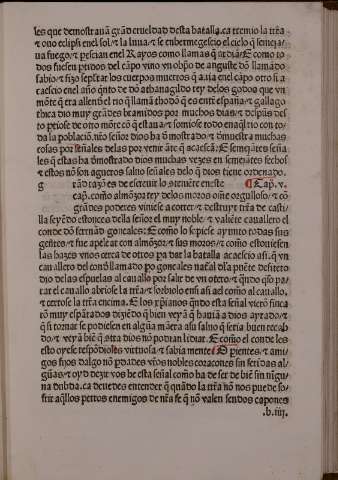 les que demostrauā grād crueldad desta batalla.ca tremio la tr̄ra
⁊ ono eclipsi enel sol ⁊ la luua/⁊ se enbermegescio el cielo q̄ semeja/
ua fuego/⁊ peścian enel Rayos como llamas q̄ ardiā⁊ E como to
dos fuesen ptidos del cāpo vino vn obpō de anguste dō llamado
sabio/⁊ fizo sepltar los cuerpos muertos q̄ auia enel cāpo otro si a
caescio enel año qnto de dō athanagildo rey delos godos que vn
mōte q̄ era allen ō el rio q̄ llamā thodō q̄ es enti españa ⁊ gallago
thica dio muy grādes bramidos por muchos dias/⁊ despues des
to ptiose de otro mōte cō q̄ estaua/⁊ somiose todo enaql rio con to
da la población. nr̄o señor dios hā ōmostrado ⁊ ōmuestra muchas
cosas por señales delas por venir āte q̄ acaesca⁊ E semejātes seña
les q̄ estas hā ōmostrado dios muchas vezes en semejātes fechos
⁊ estos nō son agueros saluo señales delo q̄ dios tiene ordenado.
g rād razō es de escreuir lo q̄ peuēre en este ¶ Cap. v.
cap. como almāzor rey delos moros oñe orgulloso/⁊ cō
grādes poderes viniese a correr ⁊ destruyr tr̄ra de casti/
lla seyēdo estonces della señor el muy noble ⁊ valiēte cauallero el
conde dō fernād gonçales⁊ E como lo sopiese ayunto todas sus
gentes/⁊ fue apelear con almāzor/⁊ sus moros/⁊ como estouiesen
las hazes vnos cerca de otros pa dar la batalla acaescio asi. q̄ vn
cauallero del conō llamado po gonçales natal dla puēte de fitero
dio delas espuelas al cauallo por salir de vn otero/⁊ qndo qso pa/
rar el cauallo abriose la tr̄ra/⁊ sorbiolo ensi asi ael como al cauallo.
⁊ cerrose la tr̄ra encima. E los xp̄ianos qndo esta señal vierō finca
rō muy espātados dizieō q̄ bien veyā q̄ hauiā a dios ayrado/⁊ q̄
q̄ si tornar se podiesen en algūa māera asu saluo q̄ seria buen recab
do/⁊ veyā biē q̄ otra dios nō podrian lidiar. E como el conde les
esto oyese respōdioles virtuosa ⁊ sabia mente⁊ O pientes/⁊ ami/
gos fijos dalgo nō pdades vr̄os nobles coraçones sin feridas al
gūas/⁊ oyd dezir vos he esta señal como ha de ser de biē sin nigu/
na dubda. ca deuedes entender q̄ quādo la tr̄ra nō nos puede so/
frir aqllos perros enemigos de nr̄a fe q̄ nō valen sendos capones
.b.iiij.